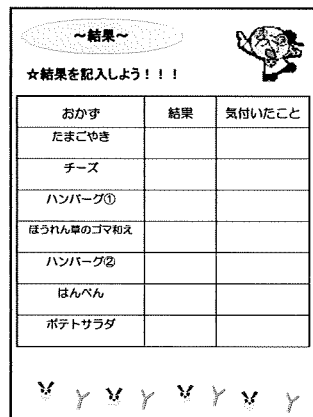 ～結果～
☆結果を記入しよう！！！
おかず 結果 気付いたこと
たまごやき
チーズ
ハンバーグ①
ほうれん草のゴマ和え
ハンバーグ②
はんぺん
ポテトサラダ